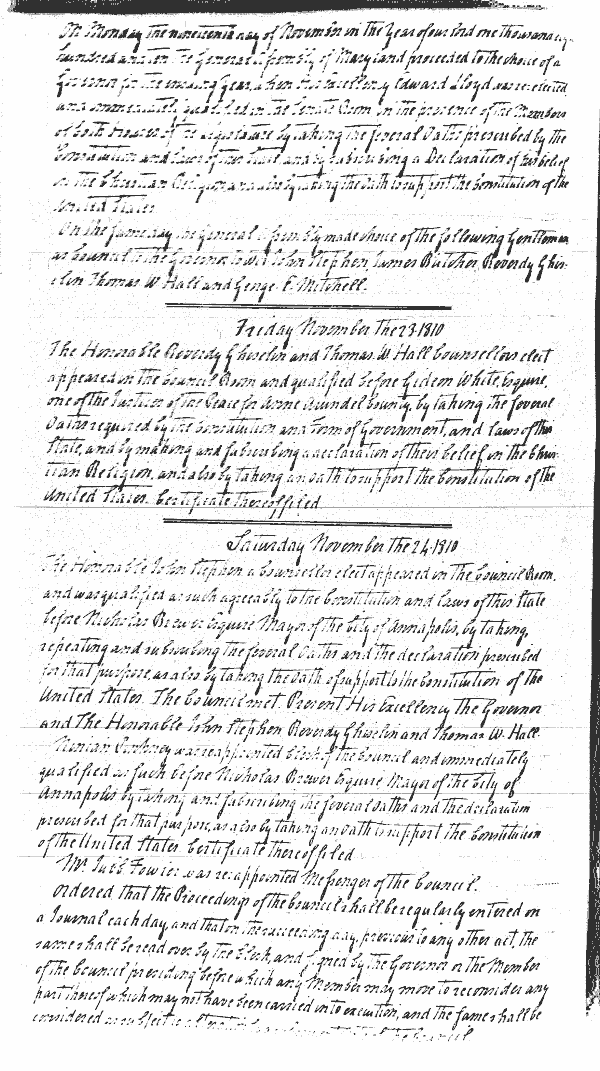 On Monday the nineteenth day of November in the Year of our Lord one thousand eig-
hundred and ten the General Assembly of Maryland proceeded to the choice of a
Governor for the ensuing Year, when His Excellency Edward Lloyd was re:elected
and immediately qualified in the Senate Room, in the presence of the Members
of both Houses of the Legislature by taking the several Oaths prescribed by the
Constitution and Laws of this State and by subscribing a Declaration of his belief
in the Christian Religion and also by taking the Oath to support the Constitution of the
United States
On the same day the General Assembly made choice of the following Gentlemen
as Council to the Governor to wit John Stephen, James Butcher, Reverdy Ghis-
elin Thomas W Hall and George E. Mitchell.
Friday November the 23. 1810
The Honorable Reverdy Ghiselin and Thomas W Hall Counsellors elect
appeared in the Council Room and qualified before Gideon White, Esquire,
one of the Justices of the Peace for Anne Arundel County, by taking the several
Oaths required by the Constitution and form of Government, and Laws of this
State, and by making and subscribing a declaration of their belief in the Chris-
tian Religion, and also by taking an oath to support the Constitution of the
United States. Certificate thereof filed
Saturday November the 24. 1810
The Honorable John Stephen a Counsellor elect appeared in the Council Room,
and was qualified as such agreeably to the Constitution and Laws of this State
before Nicholas Brewer Esquire Mayor of the City of Annapolis, by taking,
repeating and subscribing the several Oaths and the declaration prescribed
for that purpose, as also by taking the Oath of support to the Constitution of the
United States. The Council met. Present His Excellency the Governor
and The Honorable John Stephen, Reverdy Ghiselin and Thomas W. Hall.
Ninian Pinkney was reappointed Clerk of the Council and immediately
qualified as such before Nicholas Brewer Esquire Mayor of the City of
Annapolis by taking and subscribing the several Oaths and the declaration
prescribed for that purpose, as also by taking an Oath to support the Constitution
of the United States. Certificate thereof filed
Mr. Jub'b Fowler was re:appointed Messenger of the Council.
Ordered that the Proceedings of the Council shall be regularly entered on
a Journal each day, and that on the succeeding day, previous to any other act, the
same shall be read over by the Clerk, and signed by the Governor or the Member
of the Council presiding before which any Member may move to reconsider any
part thereof which may not have been carried into execution, and the same shall be
considered as subject to the Council